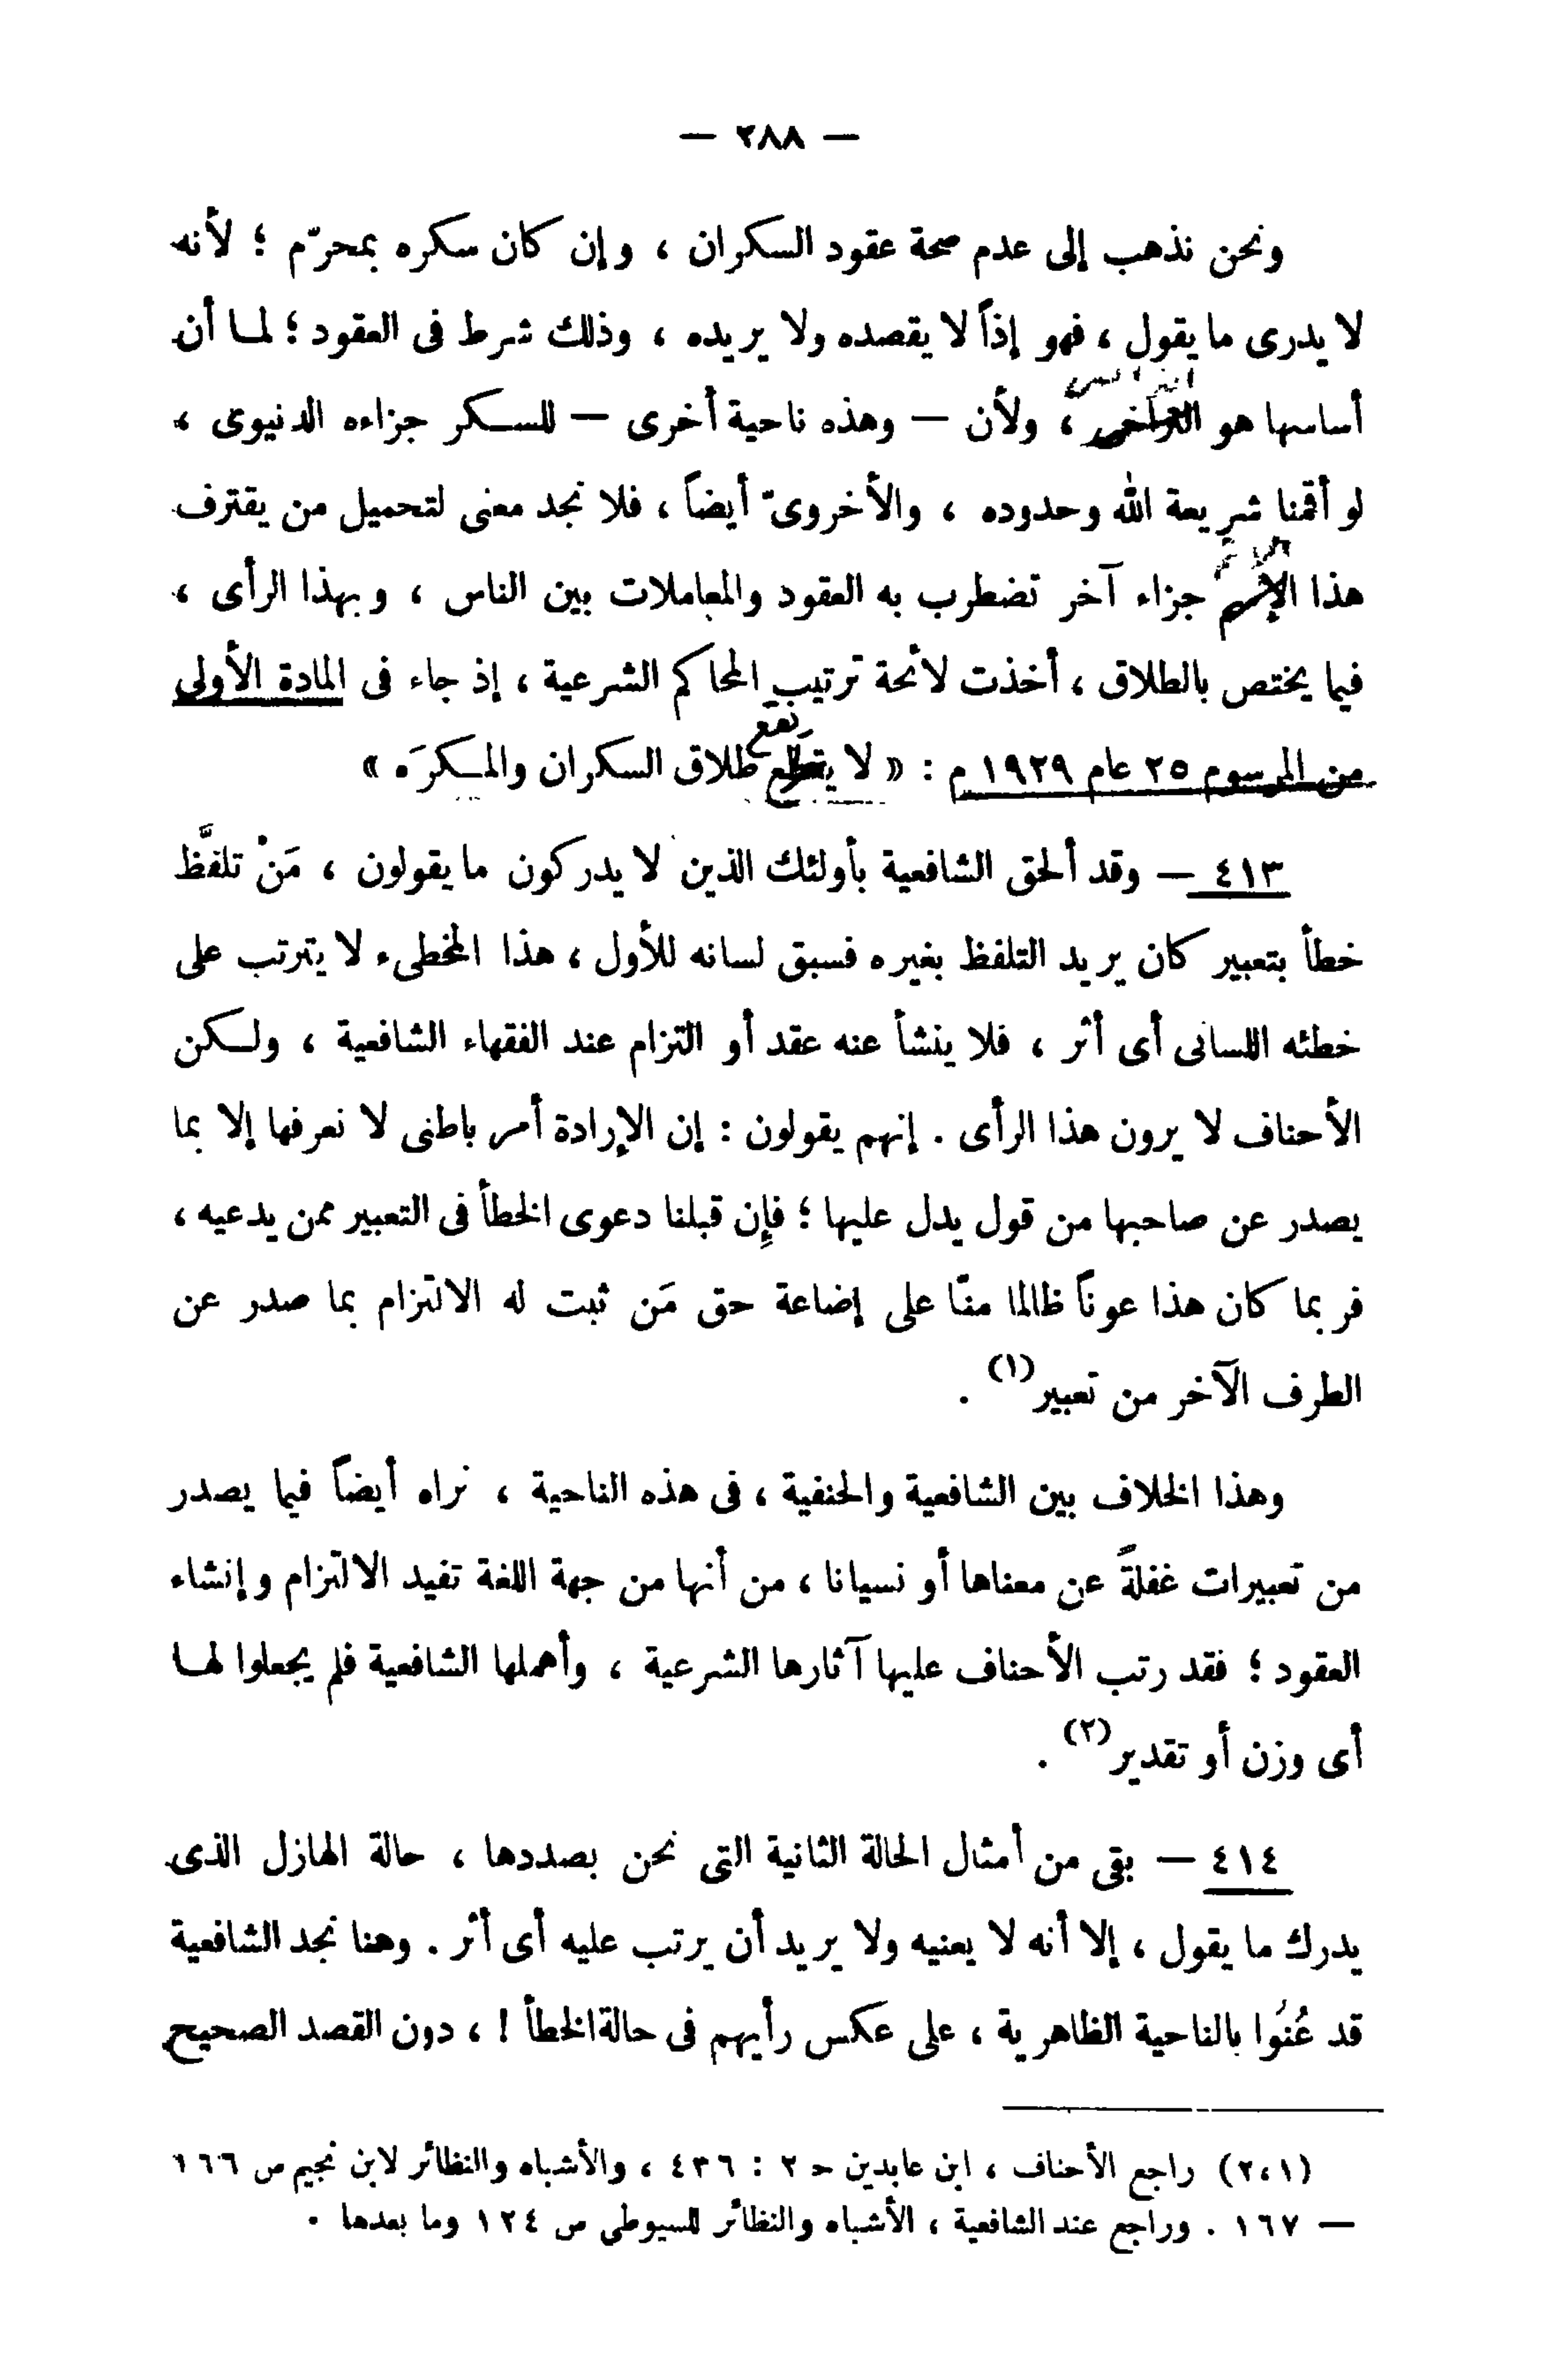 — ٢٨٨ —
ونحن نذهب إلى عدم صحة عقود السكران ، وإن كان سكره بمحرّم ؛ لأنه
لا يدرى ما يقول ، فهو إذاً لا يقصده ولا يريده ، وذلك شرط فى العقود ؛ لما أن
أساسها هو ، ولأن — وهذه ناحية أخرى — للسكر جزاءه الدنيوى ،
لو أقمنا شريعة الله وحدوده ، والأخروىّ أيضاً ، فلا نجد معنى لتحميل من يقترف
هذا جزاء آخر تضطرب به العقود والمعاملات بين الناس ، وبهذا الرأى ،
فيما يختص بالطلاق ، أخذت لائحة ترتيب المحاكم الشرعية ، إذ جاء فى المادة الأولى
من المرسوم ٢٥ عام ١٩٢٩ م : « لا يقع طلاق السكران والمكرَه »
٤١٣ — وقد ألحق الشافعية بأولئك الذين لا يدركون ما يقولون ، مَنْ تلفَّظ
خطأ بتعبير كان يريد التلفظ بغيره فسبق لسانه للأول ، هذا المخطىء لا يترتب على
خطئه اللسانى أى أثر ، فلا ينشأ عنه عقد أو التزام عند الفقهاء الشافعية ، ولكن
الأحناف لا يرون هذا الرأى . إنهم يقولون : إن الإرادة أمر باطنى لا نعرفها إلا بما
يصدر عن صاحبها من قول يدل عليها ؛ فإن قبلنا دعوى الخطأ فى التعبير ممن يدعيه ،
فربما كان هذا عوناً ظالما منّا على إضاعة حق مَن ثبت له الالتزام بما صدر عن
الطرف الآخر من تعبير(١) .
وهذا الخلاف بين الشافعية والحنفية ، فى هذه الناحية ، نراه أيضاً فيما يصدر
من تعبيرات غفلةً عن معناها أو نسيانا ، من أنها من جهة اللغة تفيد الالتزام وإنشاء
العقود ؛ فقد رتب الأحناف عليها آثارها الشرعية ، وأهملها الشافعية فلم يجعلوا لها
أى وزن أو تقدير(٢) .
٤١٤ — بقى من أمثال الحالة الثانية التى نحن بصددها ، حالة الهازل الذى
يدرك ما يقول ، إلا أنه لا يعنيه ولا يريد أن يرتب عليه أى أثر . وهنا نجد الشافعية
قد عُنُوا بالناحية الظاهرية ، على عكس رأيهم فى حالة الخطأ ! ، دون القصد الصحيح
(٢،١) راجع الأحناف ، ابن عابدين ح ٢ : ٤٣٦ ، والأشباه والنظائر لابن نجيم ص ١٦٦
— ١٦٧ . وراجع عند الشافعية ، الأشباه والنظائر للسيوطي ص ١٢٤ وما بعدها .